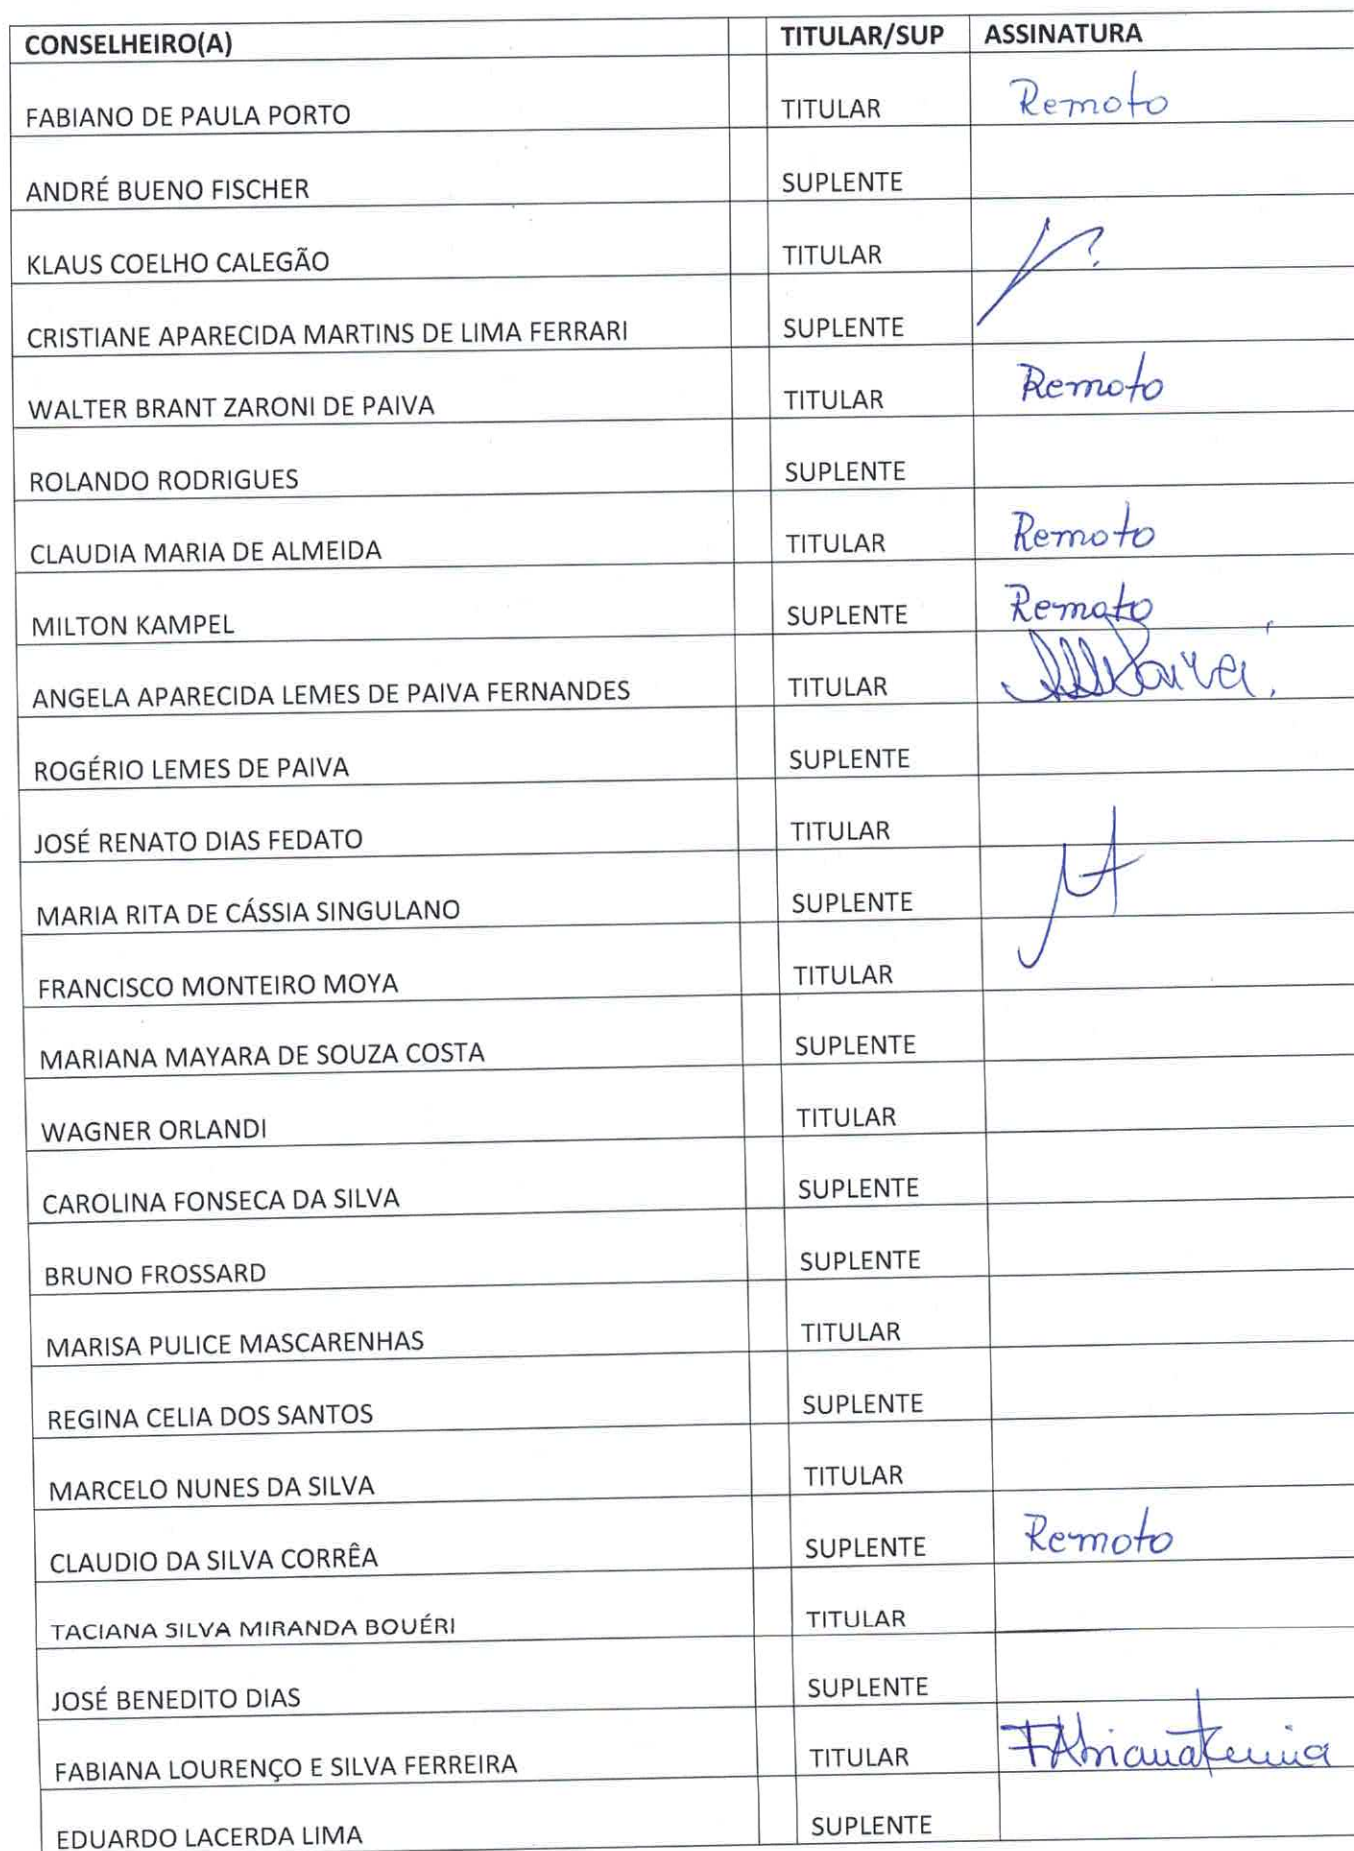 CONSELHEIRO(A) TITULAR/SUP ASSINATURA
FABIANO DE PAULA PORTO TITULAR Remoto
ANDRÉ BUENO FISCHER SUPLENTE
KLAUS COELHO CALEGÃO TITULAR
CRISTIANE APARECIDA MARTINS DE LIMA FERRARI SUPLENTE
WALTER BRANT ZARONI DE PAIVA TITULAR Remoto
ROLANDO RODRIGUES SUPLENTE
CLAUDIA MARIA DE ALMEIDA TITULAR Remoto
MILTON KAMPEL SUPLENTE Remoto
ANGELA APARECIDA LEMES DE PAIVA FERNANDES TITULAR
ROGÉRIO LEMES DE PAIVA SUPLENTE
JOSÉ RENATO DIAS FEDATO TITULAR
MARIA RITA DE CÁSSIA SINGULANO SUPLENTE
FRANCISCO MONTEIRO MOYA TITULAR
MARIANA MAYARA DE SOUZA COSTA SUPLENTE
WAGNER ORLANDI TITULAR
CAROLINA FONSECA DA SILVA SUPLENTE
BRUNO FROSSARD SUPLENTE
MARISA PULICE MASCARENHAS TITULAR
REGINA CELIA DOS SANTOS SUPLENTE
MARCELO NUNES DA SILVA TITULAR
CLAUDIO DA SILVA CORRÊA SUPLENTE Remoto
TACIANA SILVA MIRANDA BOUÉRI TITULAR
JOSÉ BENEDITO DIAS SUPLENTE
FABIANA LOURENÇO E SILVA FERREIRA TITULAR
EDUARDO LACERDA LIMA SUPLENTE